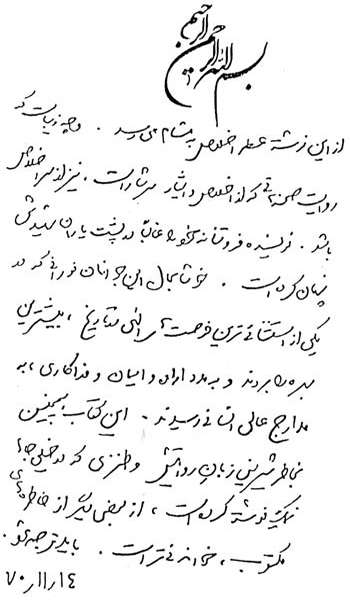 بسم الله الرحمن الرحیم
از این نوشته عطر اخلاص به مشام می‌رسد . و چه زیباست که
روایت صحنه‌هائی که از اخلاص و ایثار سرشار است ، نیز از سر اخلاص
باشد . نویسنده فروتنانه خود را غالباً در پشت یاران شهیدش
پنهان کرده است . خوشا بحال این جوانان نورانی که در
یکی از استثنائی‌ترین فرصت‌های الهی در تاریخ ، بیشترین
بهره را بردند و به مدد اراده و ایمان و فداکاری ، به
مدارج عالی انسانی رسیدند . این کتاب همچنین
بخاطر شیرینی زبانِ روایتش و طنزی که در خیلی جاها
نمکین نوشته کرده است ، از بعضی دیگر از خاطره‌های
مکتوب ، خواندنی‌تر است . باید ترجمه شود .
۷۰/۱۱/۱۴